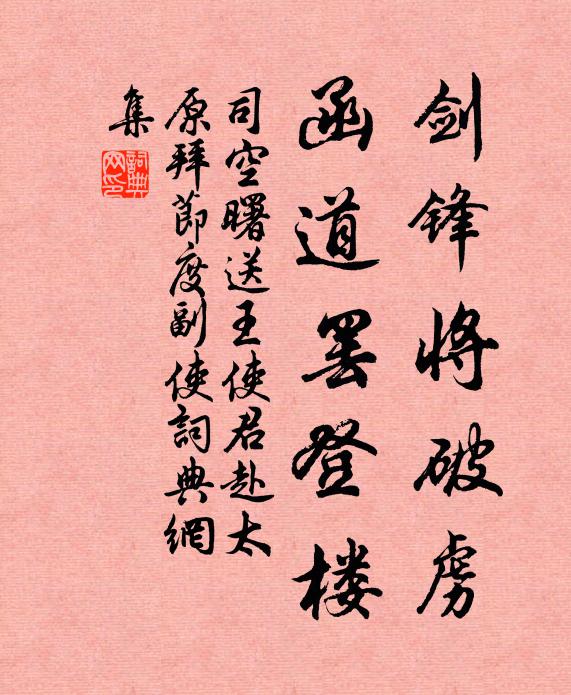 剑锋将破虏
函道罢登楼
司空曙送王使君赴太
原拜節度副使詞典網
集
詞典网印